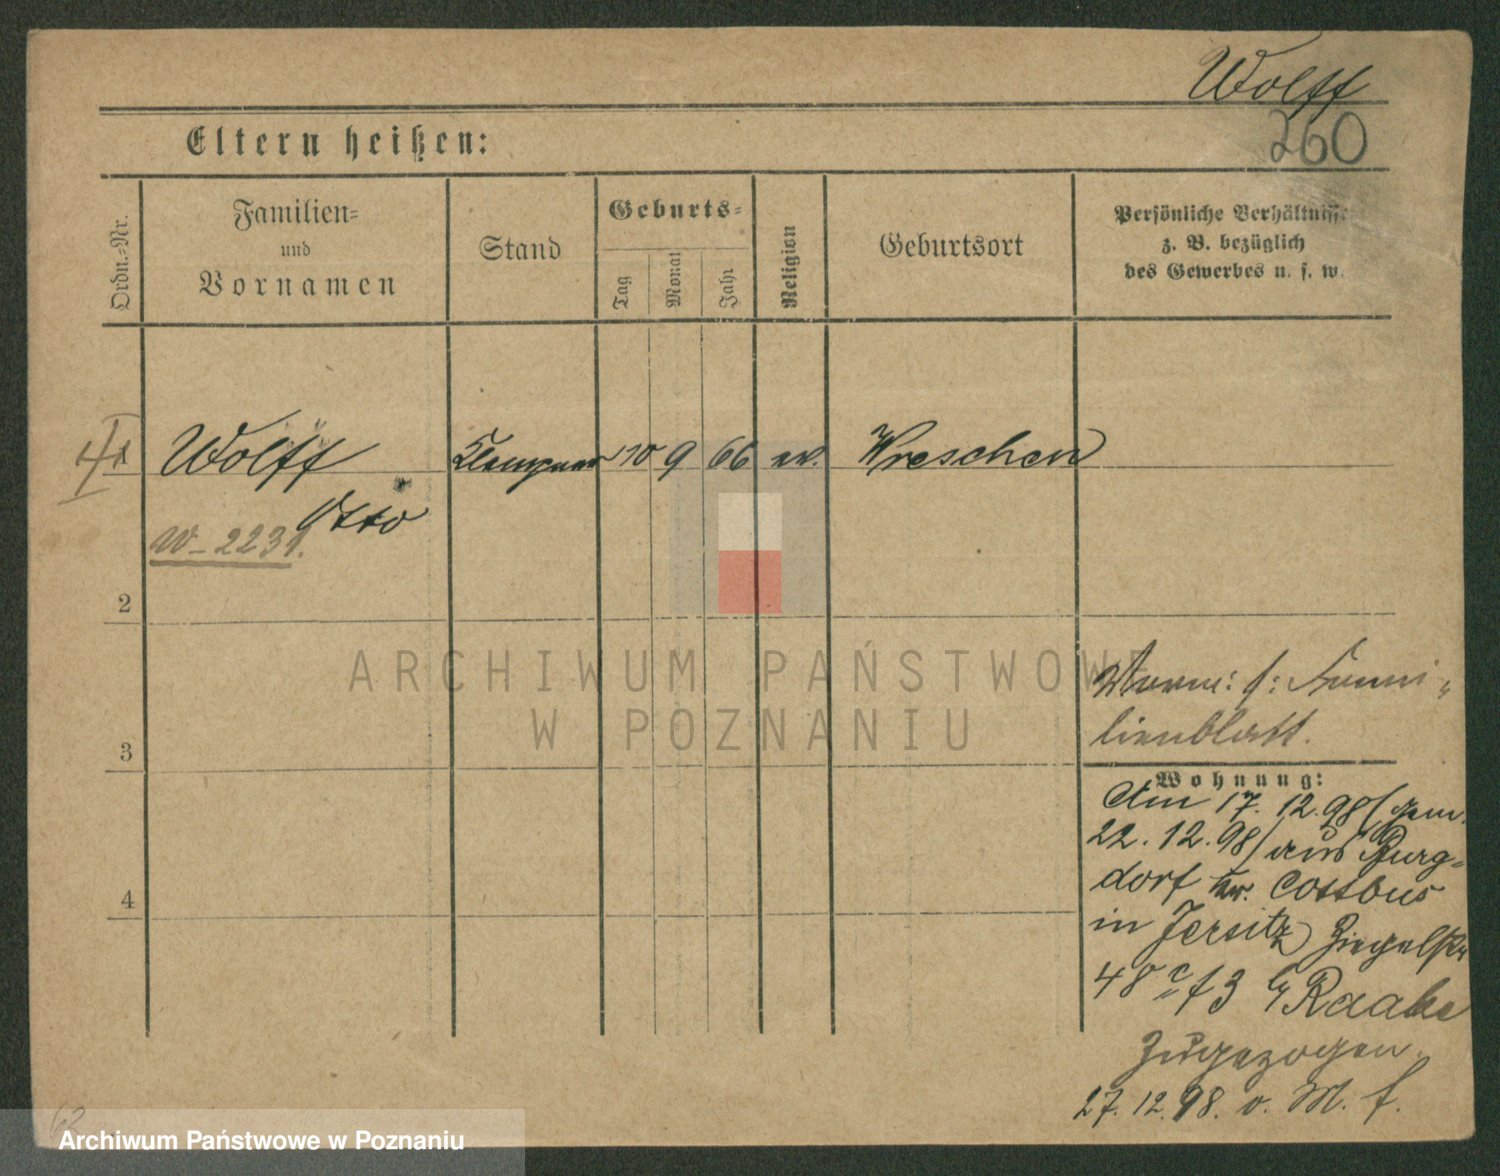 Wolff
260
Eltern heißen:
Ordn.=Nr.
Familien=
und
Vornamen
Stand
Geburts=
Tag
Monat
Jahr
Religion
Geburtsort
Persönliche Verhältnisse
z. B. bezüglich
des Gewerbes u. s. w.
Wolff Klempner 10 9 66 ev. Wreschen
Otto
W-2231.
2
3
4
ARCHIWUM PAŃSTWOWE
W POZNANIU
Verm: s: Fami=
lienblatt.
Wohnung:
Am 17. 12. 98 (gem.
22. 12. 98) aus Burg=
dorf Kr. Cottbus
in Jersitz Ziegelstr
48 c/f3 b/ Raabe
Zugezogen.
27. 12. 98. v. M. f.
Archiwum Państwowe w Poznaniu